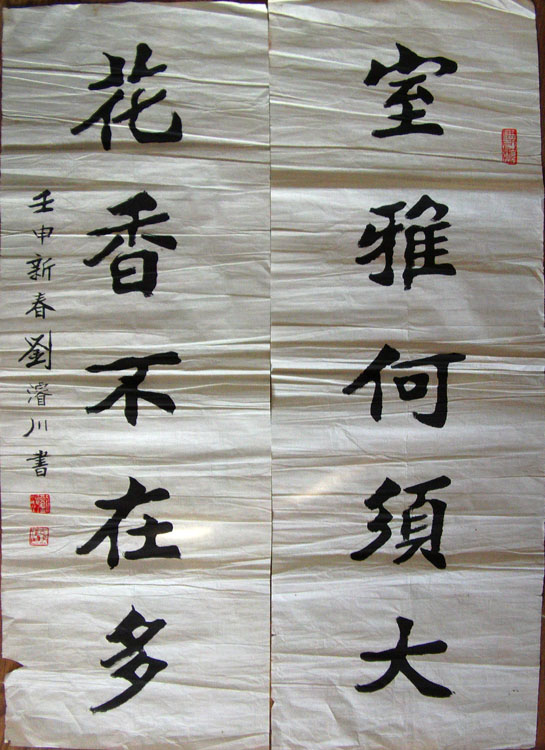 室雅何須大
花香不在多
壬申新春劉濬川書